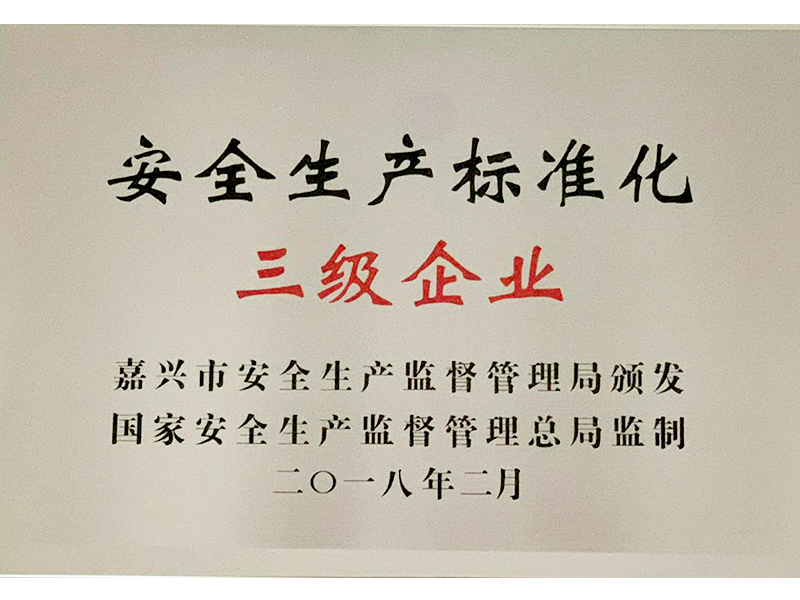 安全生产标准化
三级企业
嘉兴市安全生产监督管理局颁发
国家安全生产监督管理总局监制
二〇一八年二月